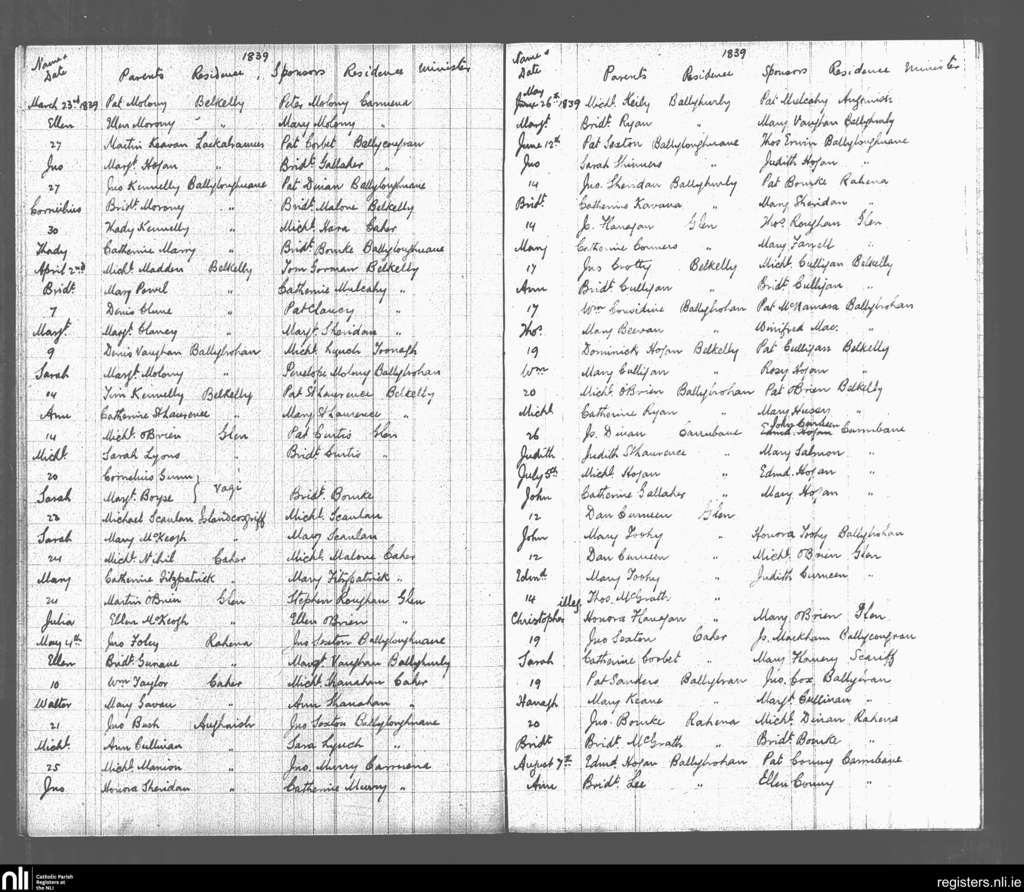 1839
Name &
Date Parents Residence Sponsors Residence Minister
March 23rd 1839 Pat Molony Belkelly Peter Molony Carmena
Ellen Ellen Morony " Mary Molony "
27 Martin Leavan Lackabaunes Pat Corbet Ballycougran
Jno Margt. Hogan " Bridt. Gallaher "
27 Jno Kennelly Ballyloughnane Pat Dinan Ballyloughnane
Cornelius Bridt Morony " Bridt. Malone Belkelly
30 Thady Kennelly " Michl. Hara Caher
Thady Catherine Marry " Bridt. Bourke Ballyloughnane
April 2nd Michl. Madden Belkelly Tom Gorman Belkelly
Bridt. Mary Powel " Catherine Mulcahy "
7 Denis Clune " Pat Clancy "
Margt. Margt. Clancy " Margt. Sheridan "
9 Denis Vaughan Ballybrohan Michl. Lynch Toonagh
Sarah Margt. Molony " Penelope Molony Ballybrohan
14 Tim Kennelly Belkelly Pat St Lawrence Belkelly
Ann Catherine St Lawrence " Mary St Lawrence "
14 Michl. O'Brien Glen Pat Curtis Glen
Michl Sarah Lyons " Bridt Curtis "
20 Cornelius Gunn
Sarah Margt. Boyse } Vagi Bridt. Bourke
23 Michael Scanlan Islandcosgriff Michl. Scanlan
Sarah Mary McKeogh " Mary Scanlan
24 Michl. Nihil Caher Michl. Malone Caher
Mary Catherine Fitzpatrick " Mary Fitzpatrick "
24 Martin O'Brien Glen Stephen Roughan Glen
Julia Ellen McKeogh " Ellen O'Brien "
May 4th Jno Foley Rahena Jno Sexton Ballyloughnane
Ellen Bridt Gunane " Margt Vaughan Ballyhurly
10 Wm Taylor Caher Michl. Shanahan Caher
Walter Mary Gavan " Ann Shanahan "
21 Jno Bush Aughnish Jno Sexton Ballyloughnane
Michl. Ann Cullinan " Sara Lynch "
25 Michl. Manion " Jno. Murry Carmena
Jno Honora Sheridan " Catherine Murry "
1839
Name &
Date Parents Residence Sponsors Residence Minister
May
26th 1839 Michl. Keily Ballyhurly Pat Mulcahy Aughnish
Margt. Bridt. Ryan " Mary Vaughan Ballyhurly
June 12th Pat Sexton Ballyloughnane Thos Erwin Ballyloughnane
Jno Sarah Skinners " Judith Hogan "
14 Jno. Sheridan Ballyhurly Pat Bourke Rahena
Bridt. Catherine Kavana " Mary Sheridan "
14 J. Hanagan Glen Thos. Roughan Glen
Mary Catherine Conners " Mary Farrell "
17 Jno Crotty Belkelly Michl. Culligan Belkelly
Ann Bridt Culligan " Bridt Culligan "
17 Wm Considine Ballybrohan Pat McNamara Ballybrohan
Thos. Mary Beevan " Winifred Mac. "
19 Dominick Hogan Belkelly Pat Culligan Belkelly
Wm Mary Culligan " Rosy Hogan "
20 Michl. O'Brien Ballybrohan Pat O'Brien Belkelly
Michl Catherine Ryan " Mary Hussey "
John Curneen
26 Js. Dinan Carrubane Edmd. Hogan Carrubane
Judith Judith St Lawrence " Mary Salmon "
July 5th Michl Hogan " Edmd. Hogan "
John Catherine Gallaher " Mary Hogan "
12 Dan Curneen Glen
John Mary Toohy " Honora Toohy Ballybrohan
12 Dan Curneen " Michl. O'Brien Glen
Edmd Mary Toohy " Judith Curneen "
14 illeg. Thos. McGrath "
Christopher Honora Hanagan " Mary O'Brien Glen
19 Jno Sexton Caher Js. Markham Ballycougran
Sarah Catherine Corbet " Mary Flanery Scariff
19 Pat Sanders Ballylvan Jno. Cox Ballyevan
Hanagh Mary Keane " Margt. Cullinan "
20 Jno. Bourke Rahena Michl. Dinan Rahena
Bridt Bridt. McGrath " Bridt. Bourke "
August 7th Edmd. Hogan Ballybrohan Pat Conny Carrubane
Anne Bridt. Lee " Ellen Conny "
nli Catholic Parish
Registers at
the NLI
registers.nli.ie